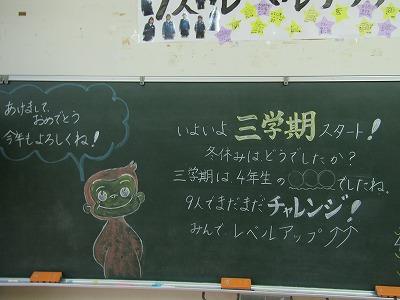 あけまして、
おめでとう
今年もよろしくね!
いよいよ三学期スタート!
冬休みは、どうでしたか?
三学期は、4年生の○○○でしたね。
9人でまだまだチャレンジ!
みんなでレベルアップ↑↑